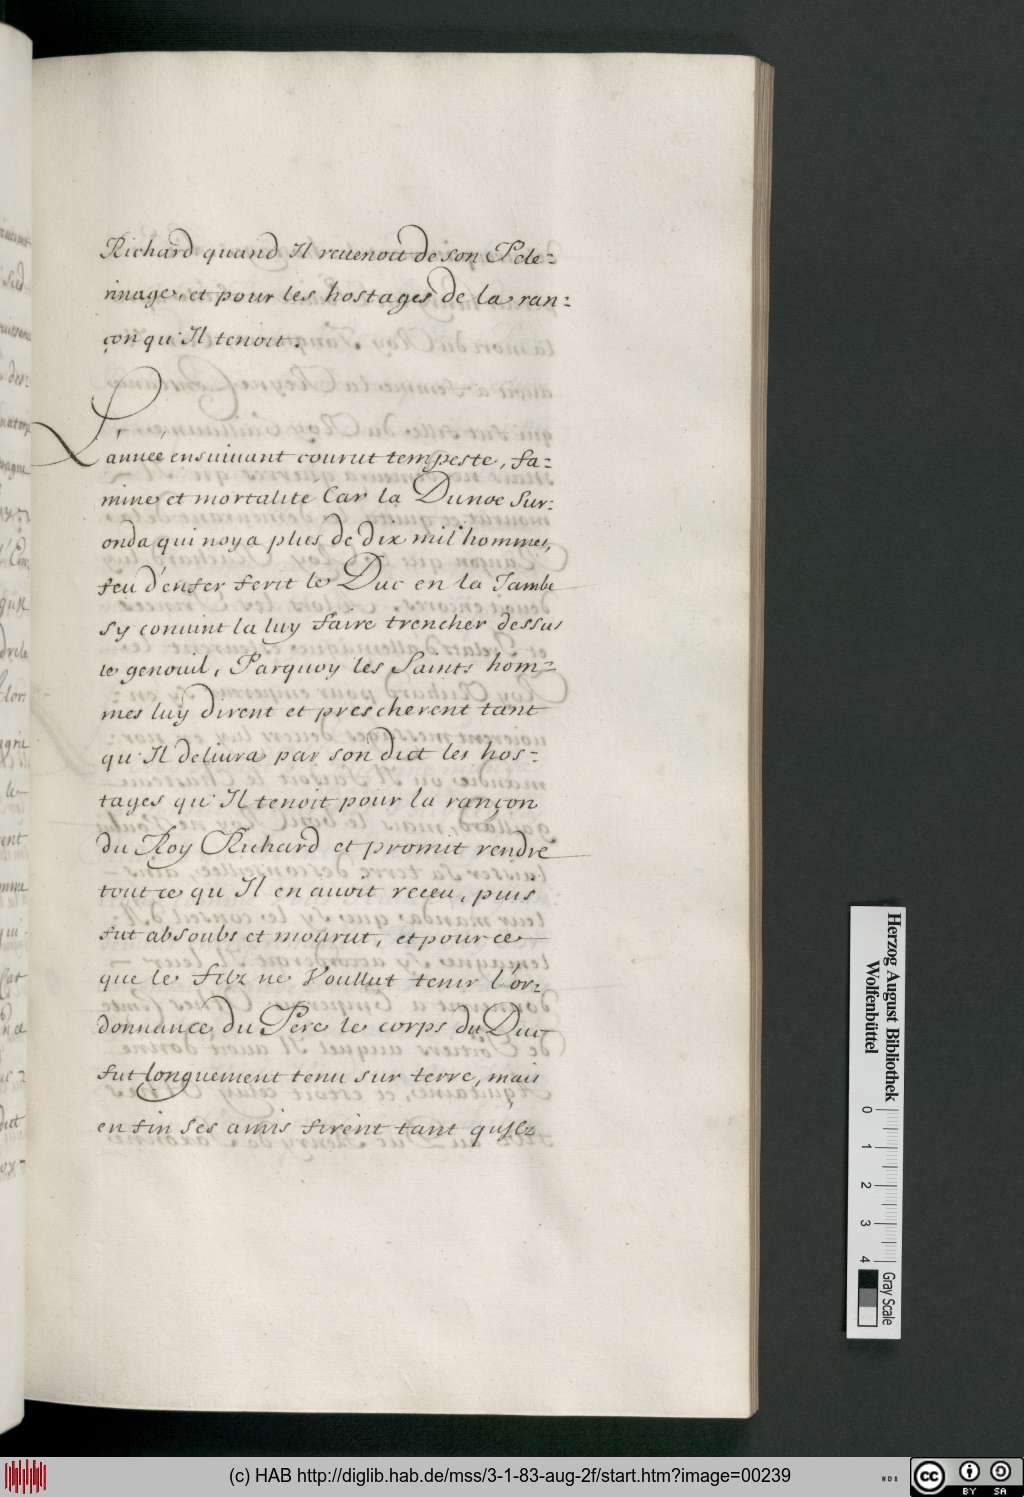 Richard quand Il reuenoit de son Pele-
rinage, et pour les hostages de la ran-
çon qu'Il tenoit.
L'annee ensuiuant courut tempeste, fa-
mine et mortalite Car la Dunoe sur-
onda qui noya plus de dix mil hommes,
feu d'enfer ferit le Duc en la Jambe
sy conuint la luy faire trencher dessus
le genouil, Parquoy les Saints hom-
mes luy dirent et prescherent tant
qu'Il deliura par son dict les hos-
tages qu'Il tenoit pour la rançon
du Roy Richard et promit rendre
tout ce qu Il en auoit receu, puis
fut absoubs et mourut, et pource
que le filz ne Voullut tenir l'or-
donnance du Pere le corps du Duc
fut longuement tenu sur terre, mais
en fin ses amis firent tant qu'Ilz
Herzog August Bibliothek
Wolfenbüttel
0 1 2 3 4
Gray Scale
(c) HAB http://diglib.hab.de/mss/3-1-83-aug-2f/start.htm?image=00239
cc BY SA